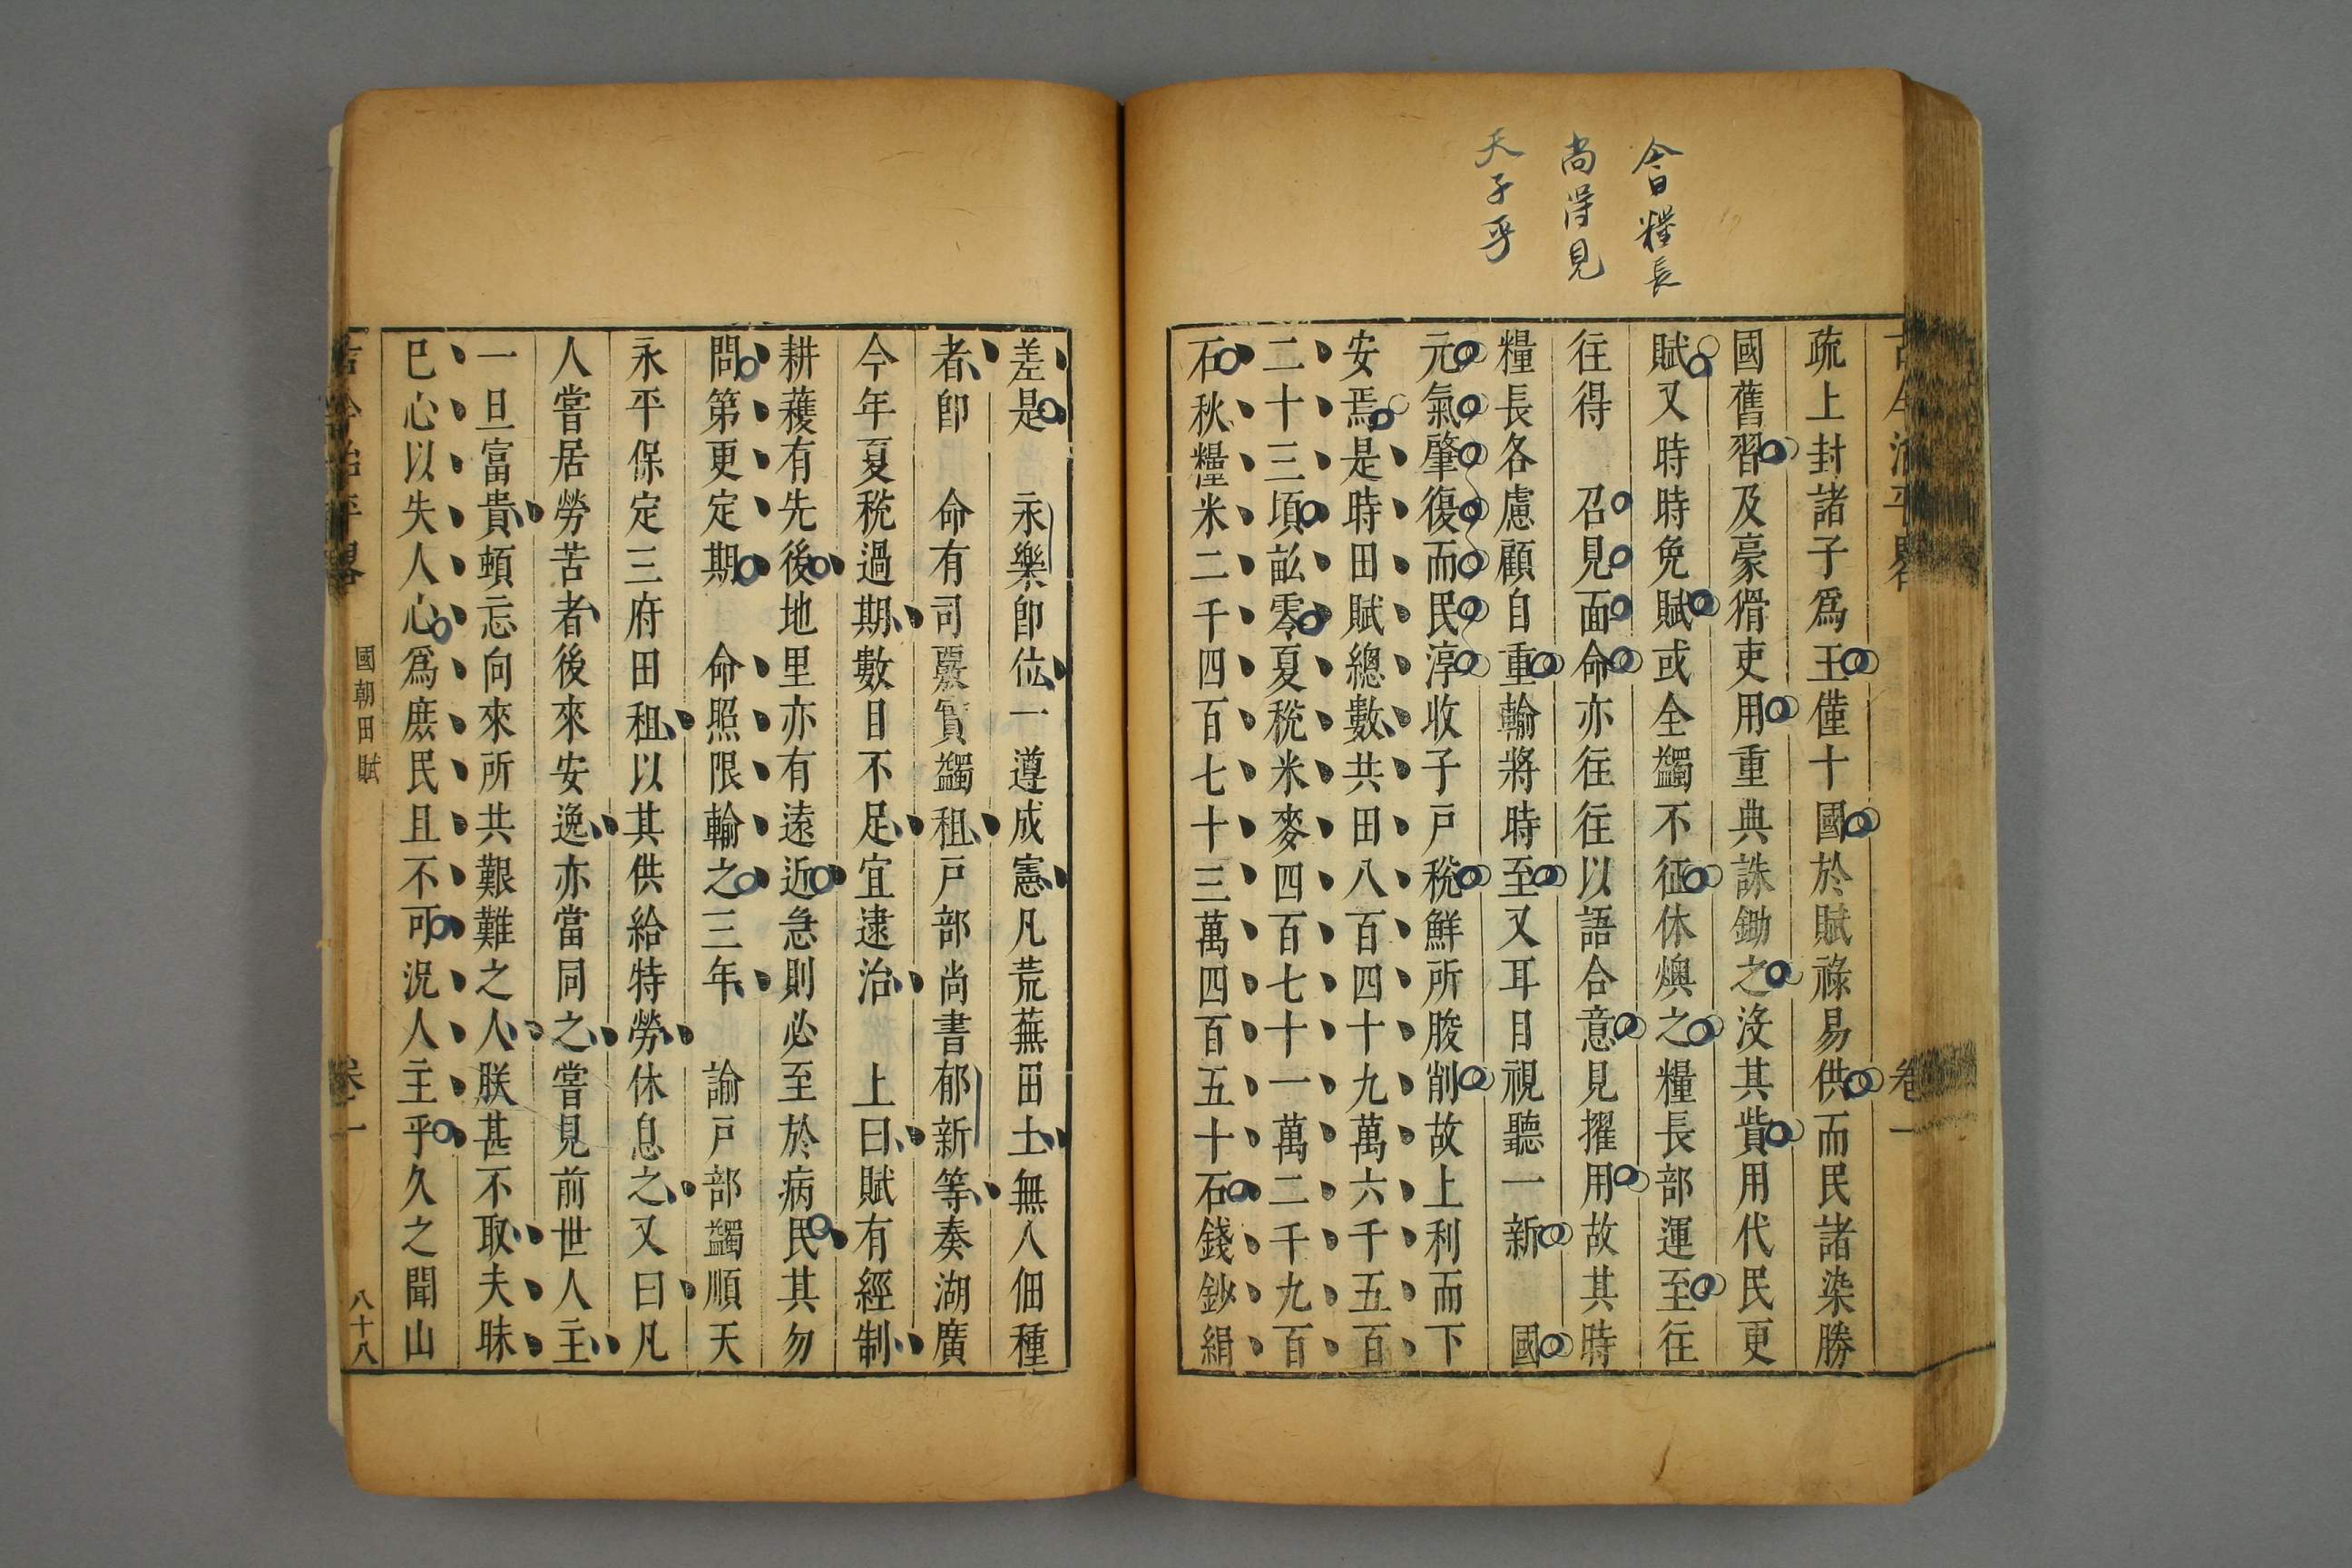 今日糧長
尚得見
天子乎
卷一
疏上封諸子爲王僅十國於賦祿易供而民諸染勝
國舊習及豪猾吏用重典誅鋤之沒其貲用代民更
賦又時時免賦或全蠲不征休燠之糧長部運至往
往得　召見面命亦往往以語合意見擢用故其時
糧長各慮顧自重輸將時至又耳目視聽一新　國
元氣肇復而民淳收子戶稅鮮所朘削故上利而下
安焉是時田賦總數共田八百四十九萬六千五百
二十三頃畝零夏稅米麥四百七十一萬二千九百
石秋糧米二千四百七十三萬四百五十石錢鈔絹
差是　永樂卽位一遵成憲凡荒蕪田土無人佃種
者卽　命有司覈實蠲租戶部尚書郁新等奏湖廣
今年夏稅過期數日不足宜逮治　上曰賦有經制
耕穫有先後地里亦有遠近急則必至於病民其勿
問第更定期　命照限輸之三年　諭戶部蠲順天
永平保定三府田租以其供給特勞休息之又曰凡
人嘗居勞苦者後來安逸亦當同之嘗見前世人主
一旦富貴頓忘向來所共艱難之人朕甚不取夫昧
已心以失人心爲庶民且不可況人主乎久之聞山
古今治平畧
國朝田賦
卷一
八十八